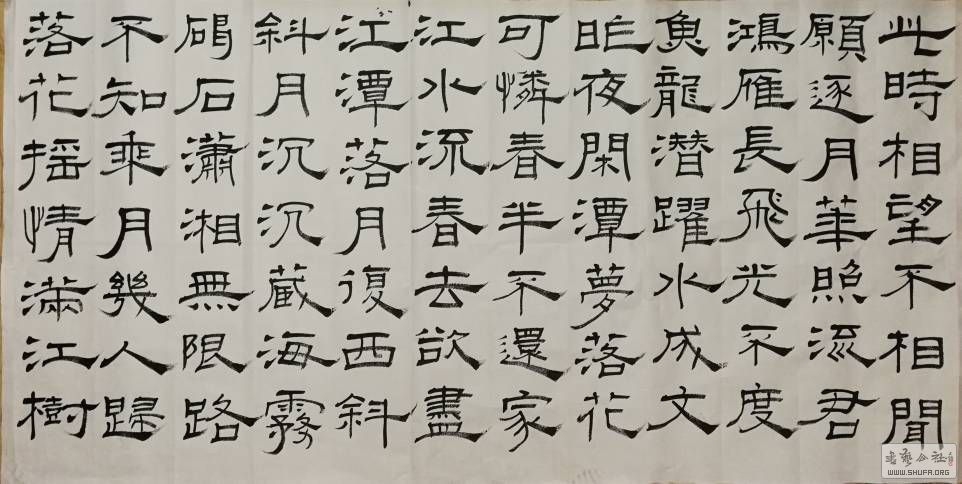 此時相望不相聞
願逐月華照流君
鴻雁長飛光不度
魚龍潛躍水成文
昨夜閑潭夢落花
可憐春半不還家
江水流春去欲盡
江潭落月復西斜
斜月沉沉藏海霧
碣石瀟湘無限路
不知乘月幾人歸
落花搖情滿江樹
書藝公社
WWW.SHUFA.ORG